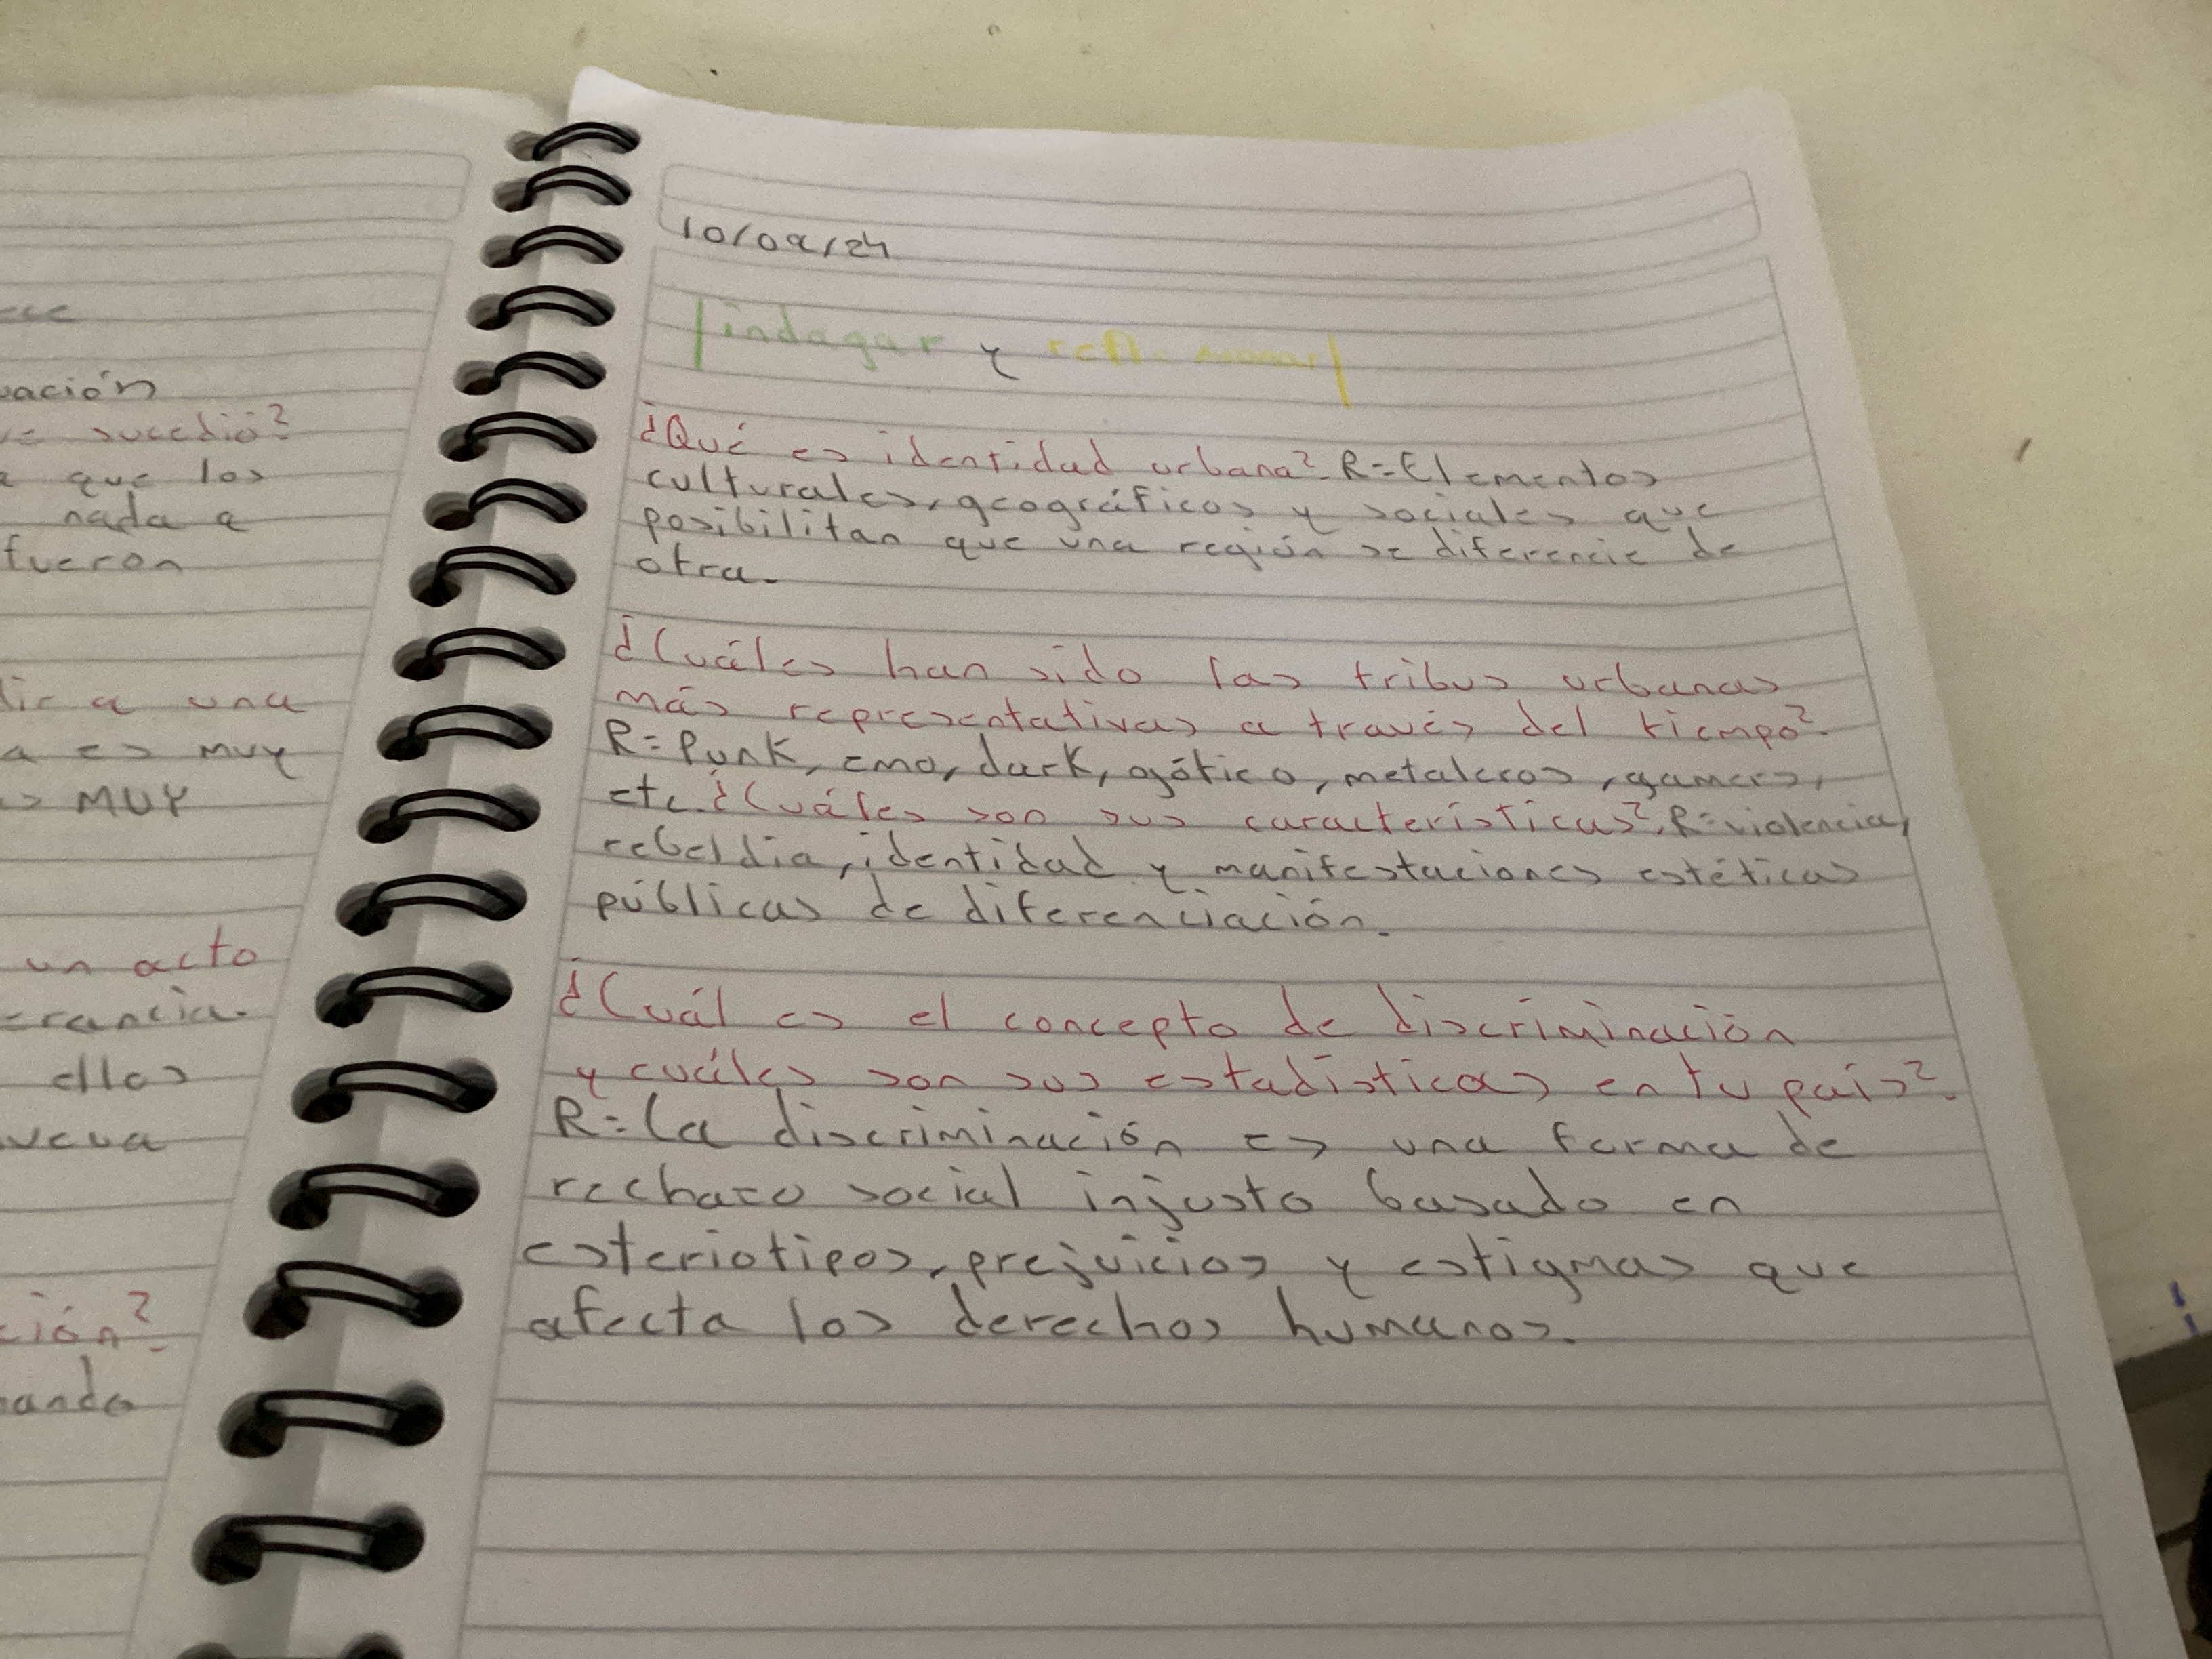 ación
sucedió?
que los
nada a
fueron
a una
a es muy
MUY
un acto
ellos
ción?
10/09/24
indagar y
¿Qué es identidad urbana? R=Elementos
culturales, geográficos y sociales que
posibilitan que una región se diferencie de
otra.
¿Cuáles han sido las tribus urbanas
más representativas a través del tiempo?
R= Punk, emo, dark, gótico, metaleros, gamers,
etc. ¿Cuáles son sus características? R=violencia,
rebeldia, identidad y manifestaciones estéticas
públicas de diferenciación.
¿Cuál es el concepto de discriminación
y cuáles son sus estadísticas en tu país?
R= La discriminación es una forma de
rechazo social injusto basado en
esteriotipos, prejuicios y estigmas que
afecta los derechos humanos.